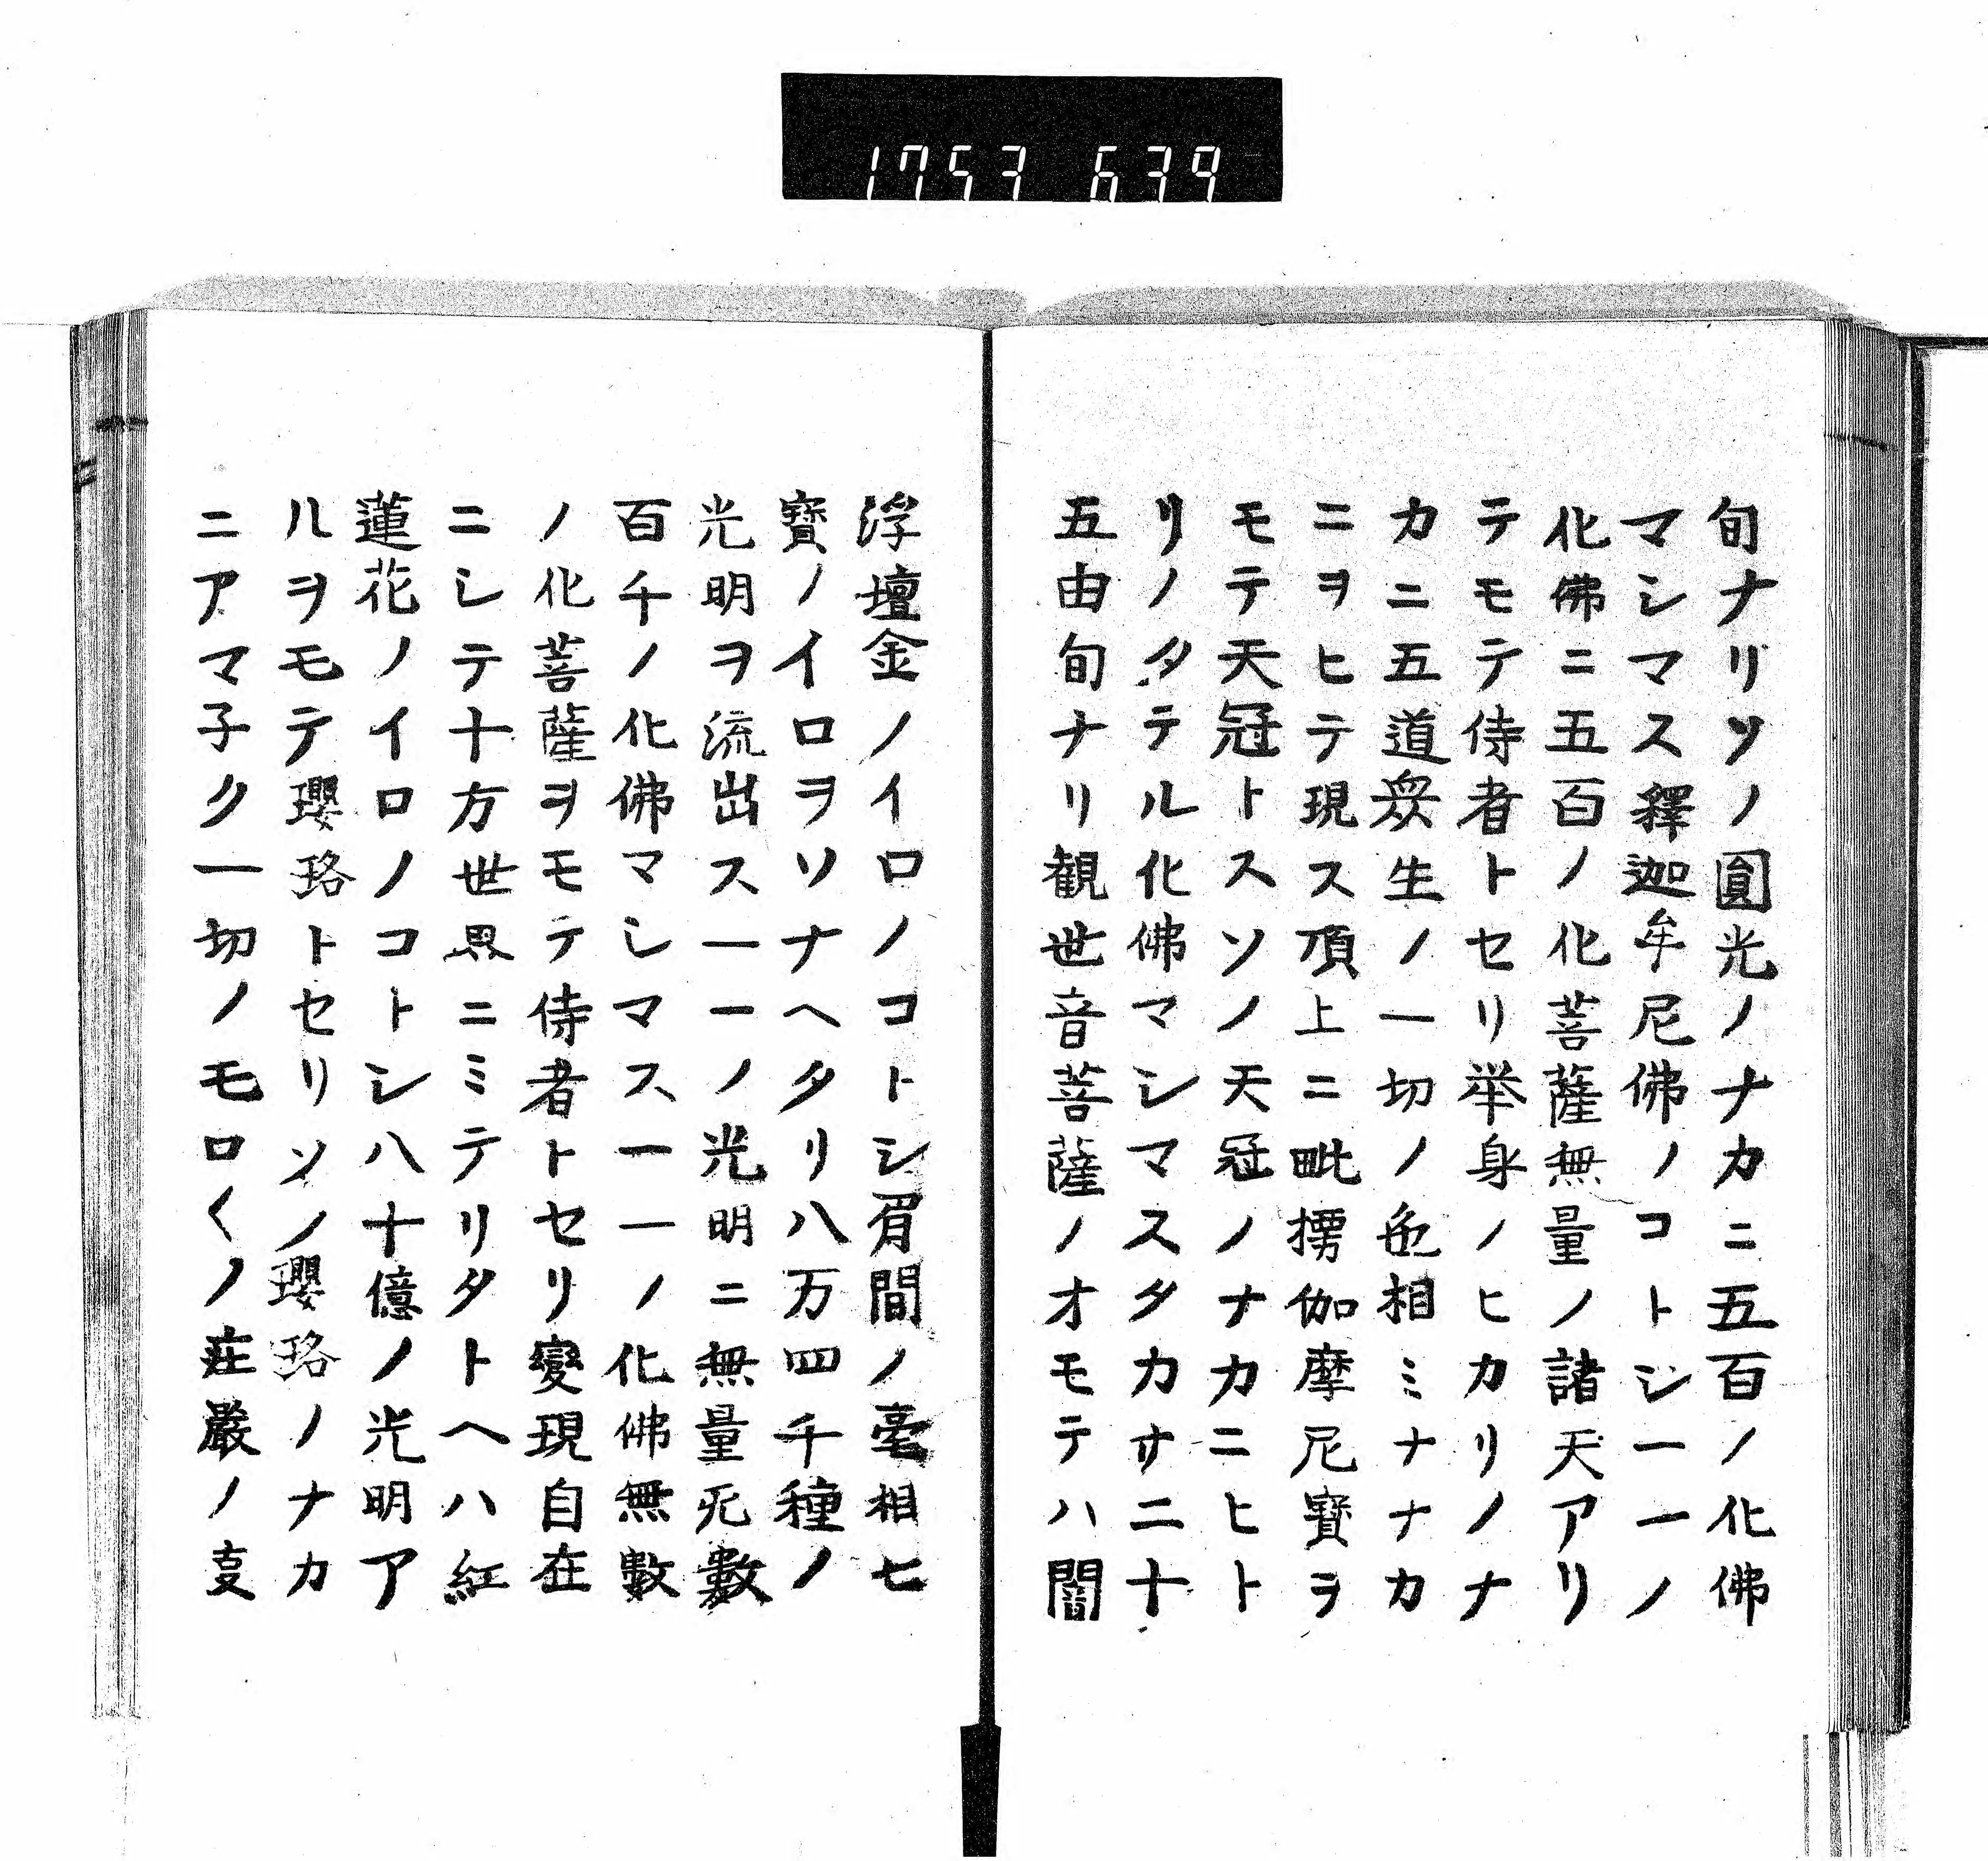 1753 639
旬ナリソノ圓光ノナカニ五百ノ化佛
マシマス釋迦牟尼佛ノコトシ一一ノ
化佛ニ五百ノ化菩薩無量ノ諸天アリ
テモテ侍者トセリ举身ノヒカリノナ
カニ五道衆生ノ一切ノ色相ミナナカ
ニヲヒテ現ス頂上ニ毗摴伽摩尼寳ヲ
モテ天冠トスソノ天冠ノナカニヒト
リノタテル化佛マシマスタカサ二十
五由旬ナリ観世音菩薩ノオモテハ閻
浮壇金ノイロノコトシ眉間ノ毫相七
寳ノイロヲソナヘタリ八万四千種ノ
光明ヲ流出ス一一ノ光明ニ無量无數
百千ノ化佛マシマス一一ノ化佛無數
ノ化菩薩ヲモテ侍者トセリ變現自在
ニシテ十方世界ニミテリタトヘハ紅
蓮花ノイロノコトシ八十億ノ光明ア
ルヲモテ瓔珞トセリソノ瓔珞ノナカ
ニアマ子ク一切ノモロ〱ノ荘嚴ノ叓